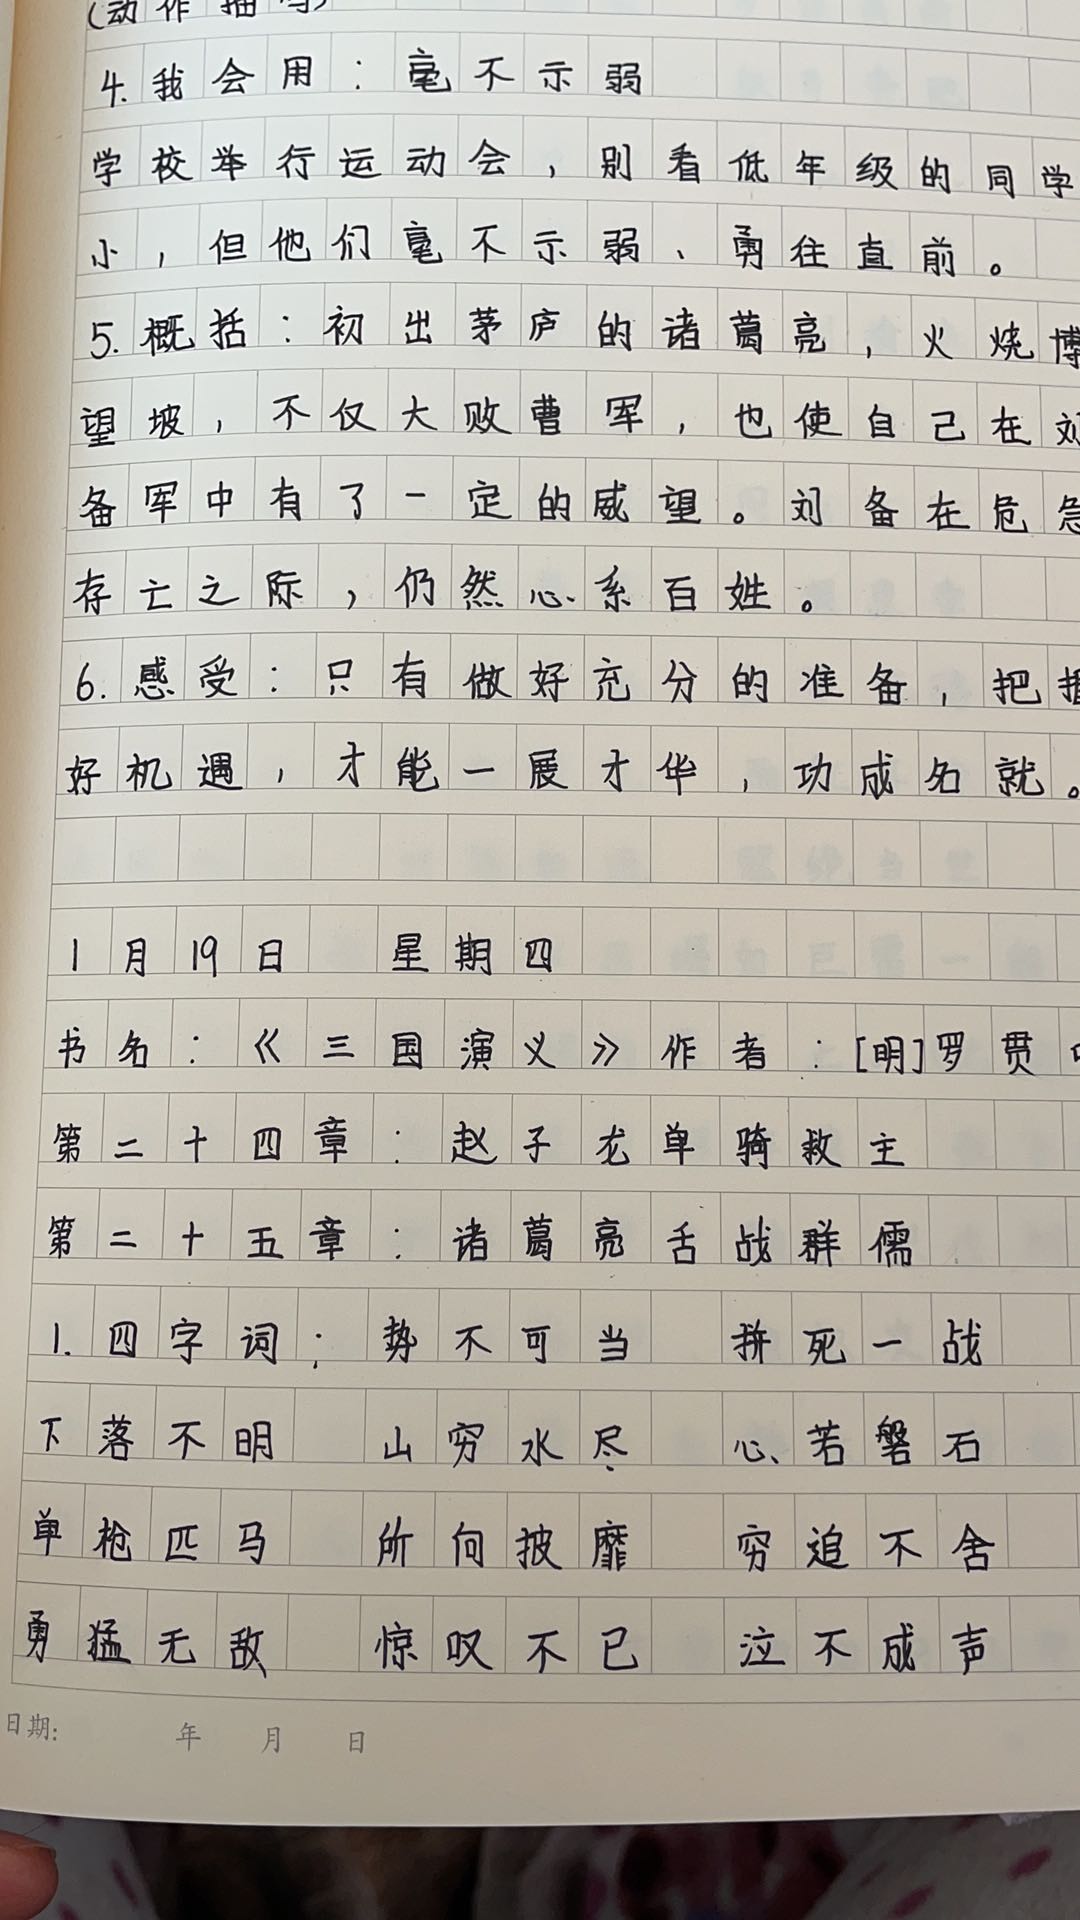 (动作描写)
4.我会用：毫不示弱
学校举行运动会，别看低年级的同学
小，但他们毫不示弱、勇往直前。
5.概括：初出茅庐的诸葛亮，火烧博
望坡，不仅大败曹军，也使自己在刘
备军中有了一定的威望。刘备在危急
存亡之际，仍然心系百姓。
6.感受：只有做好充分的准备，把握
好机遇，才能一展才华，功成名就。
1月19日 星期四
书名：《三国演义》作者：[明]罗贯中
第二十四章：赵子龙单骑救主
第二十五章：诸葛亮舌战群儒
1.四字词：势不可当 拼死一战
下落不明 山穷水尽 心若磐石
单枪匹马 所向披靡 穷追不舍
勇猛无敌 惊叹不已 泣不成声
日期: 年 月 日